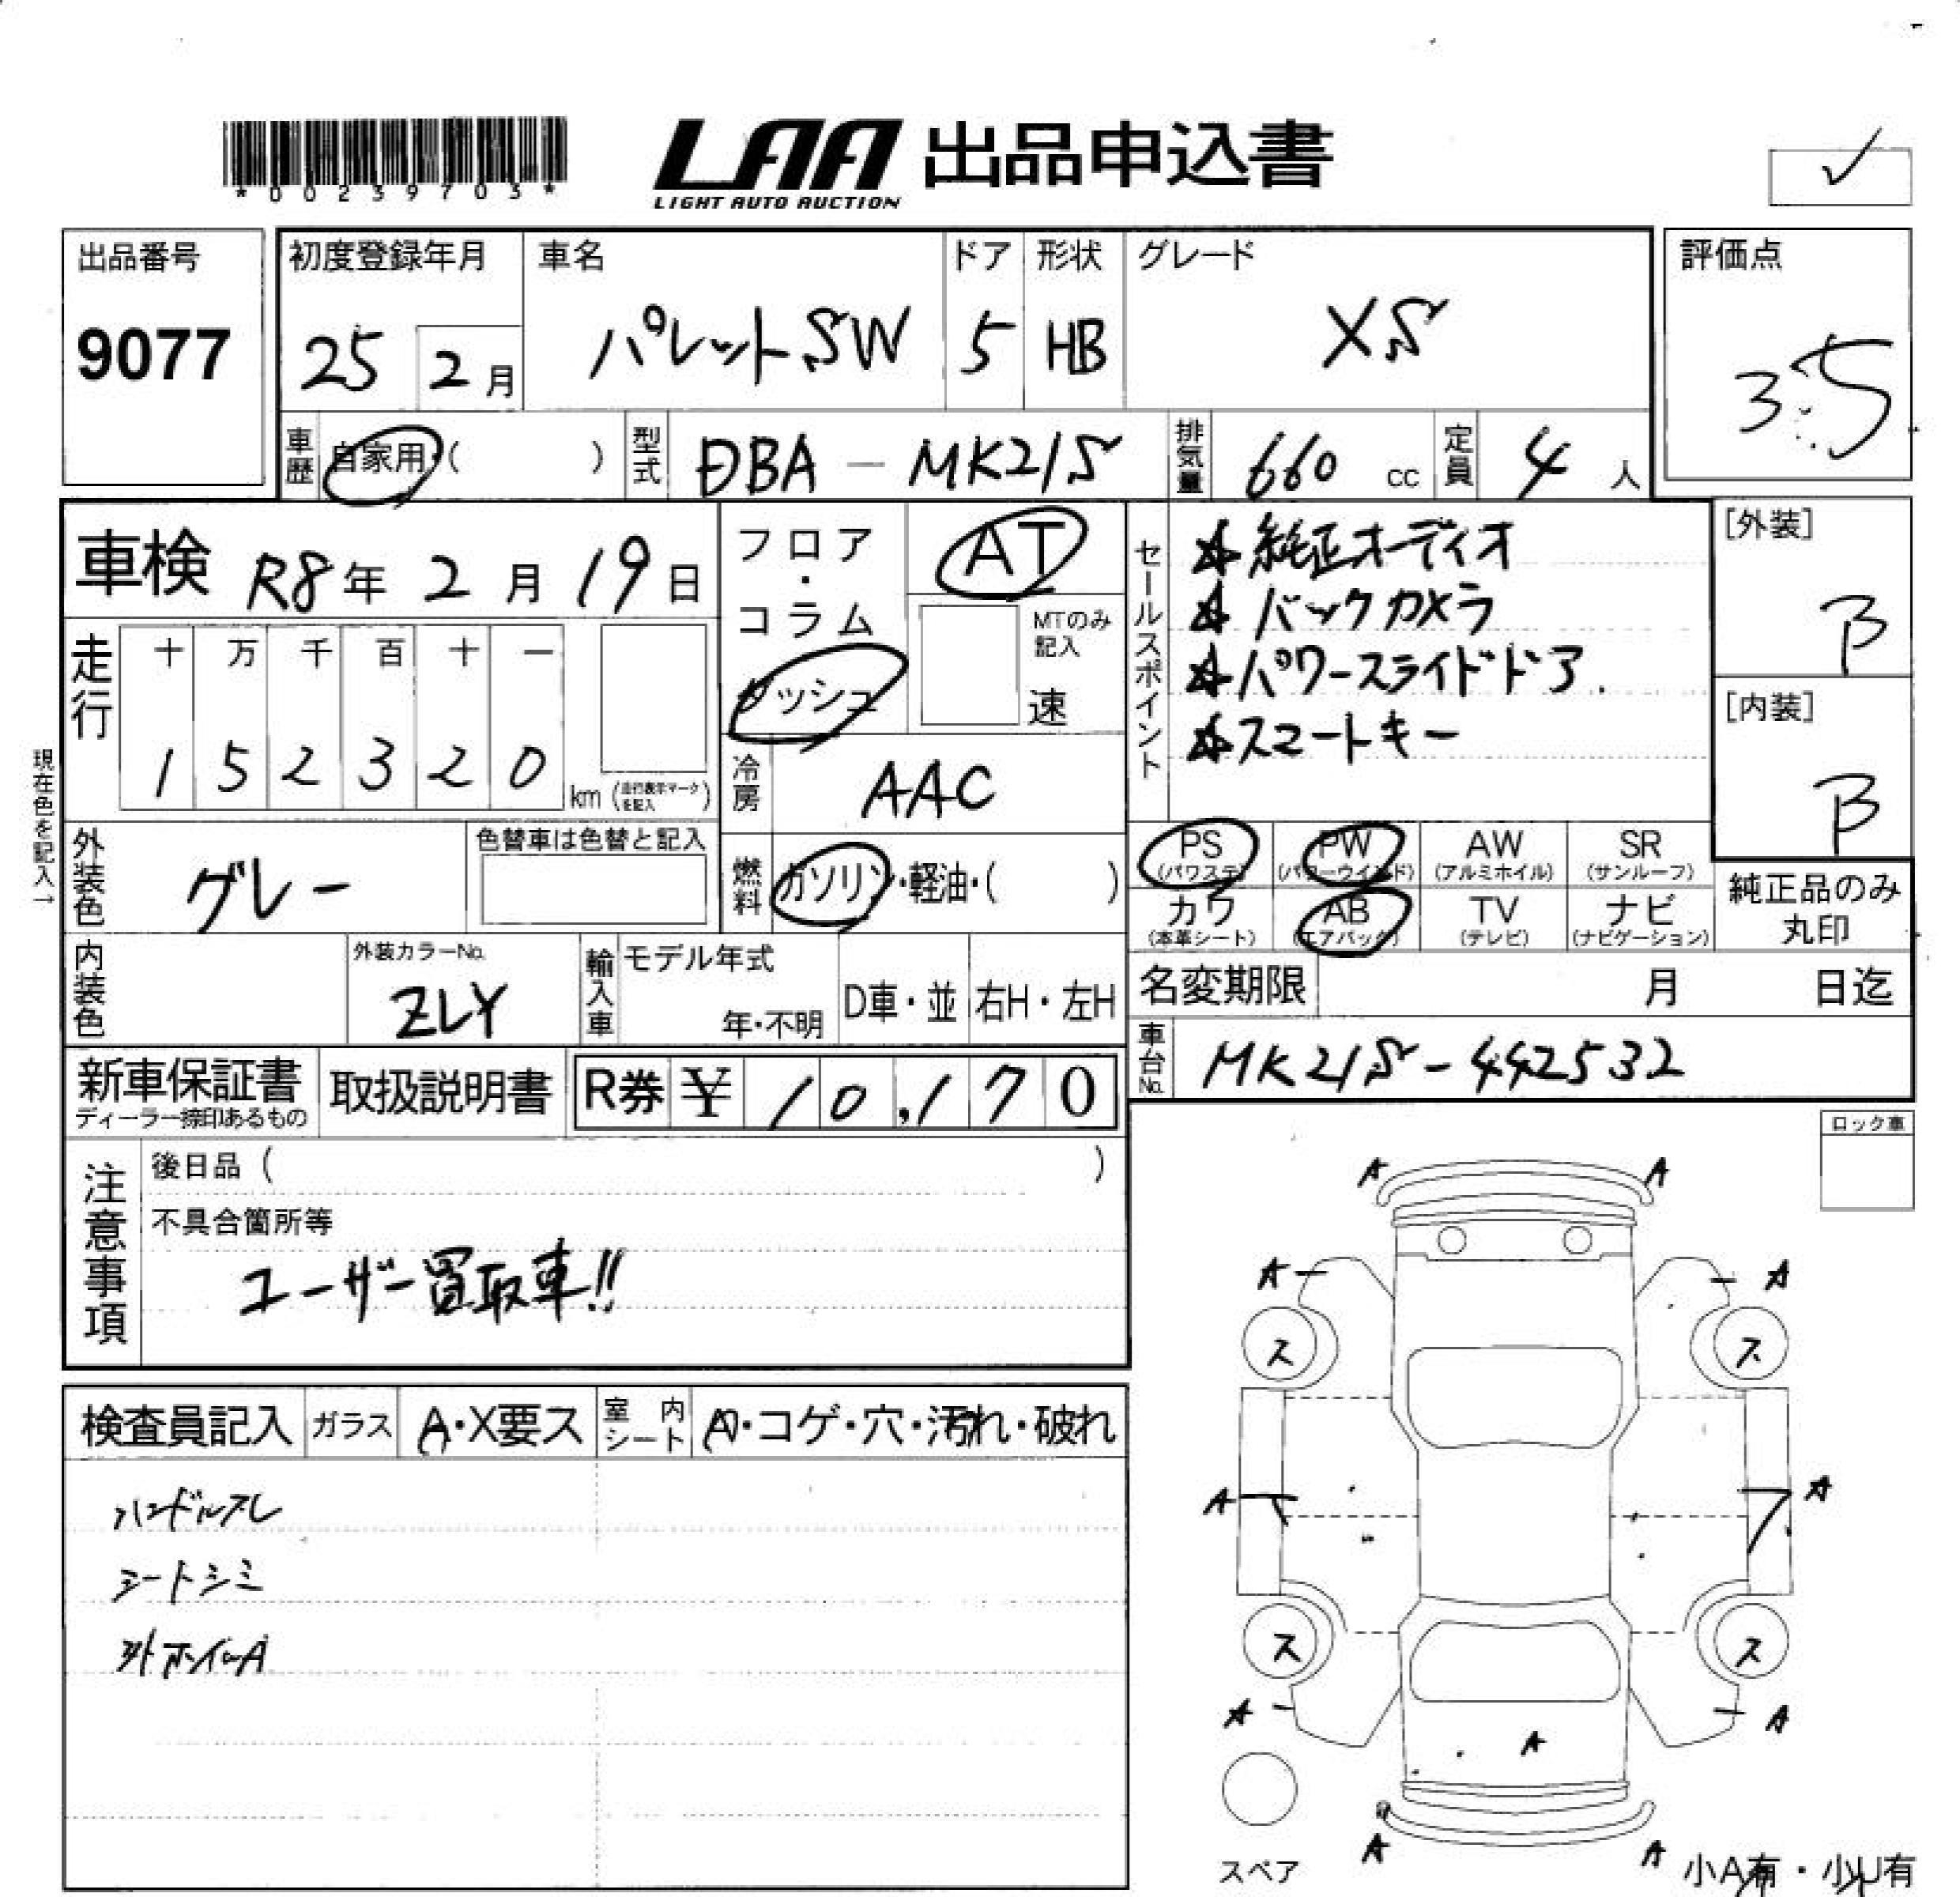 *00239703*
LAA 出品申込書
LIGHT AUTO AUCTION
✓
出品番号
9077
初度登録年月
25 2月
車名
パレットSW
ドア
5
形状
HB
グレード
XS
評価点
3.5
車歴 自家用・( )
型式 DBA - MK21S
排気量 660 cc
定員 4 人
車検 R8年 2月 19日
フロア・コラム
ダッシュ
AT
MTのみ記入
速
セールスポイント
☆純正オーディオ
☆バックカメラ
☆パワースライドドア.
☆スマートキー
[外装]
B
[内装]
B
走行
十 万 千 百 十 一
1 5 2 3 2 0 km (走行表示マークを記入)
現在色を記入→
冷房 AAC
外装色 グレー
色替車は色替と記入
燃料 ガソリン・軽油・( )
PS (パワステ)
PW (パワーウインド)
AW (アルミホイル)
SR (サンルーフ)
カワ (本革シート)
AB (エアバック)
TV (テレビ)
ナビ (ナビゲーション)
純正品のみ丸印
内装色
外装カラーNo.
ZLY
輸入車
モデル年式
年・不明
D車・並
右H・左H
名変期限 月 日迄
車台No. MK21S-442532
新車保証書
ディーラー捺印あるもの
取扱説明書
R券 ¥ 10,170
ロック車
注意事項
後日品 ( )
不具合箇所等
ユーザー買取車!!
検査員記入
ガラス A・X要ス
室内シート A・コゲ・穴・汚れ・破れ
ハンドルスレ
シートシミ
外ホイルA
A A
A A
ス ス
A A
ス ス
A A
A
A A
スペア
小A有・小U有